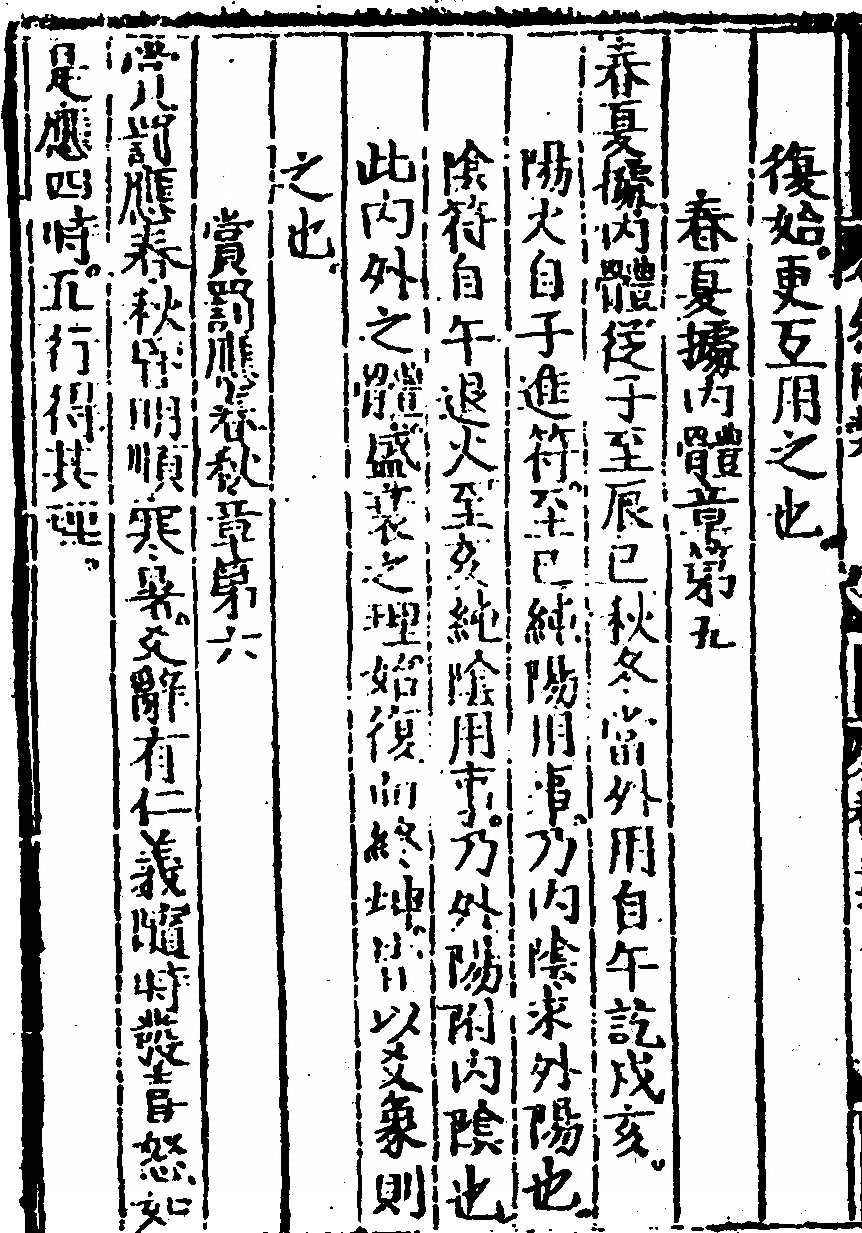 復始。更互用之也。
春夏據内體章第五
春夏據内體。從子至辰巳。秋冬當外用。自午訖戌亥。
陽火自子進符。至巳純陽用事。乃内陰求外陽也。
陰符自午退火。至亥純陰用事。乃外陽附内陰也。
此内外之體。盛衰之理。始復而終坤。皆以爻象則
之也。
賞罰應春秋章第六
賞罰應春秋。昏明順寒暑。爻辭有仁義。隨時發喜怒。如
是應四時。五行得其理。